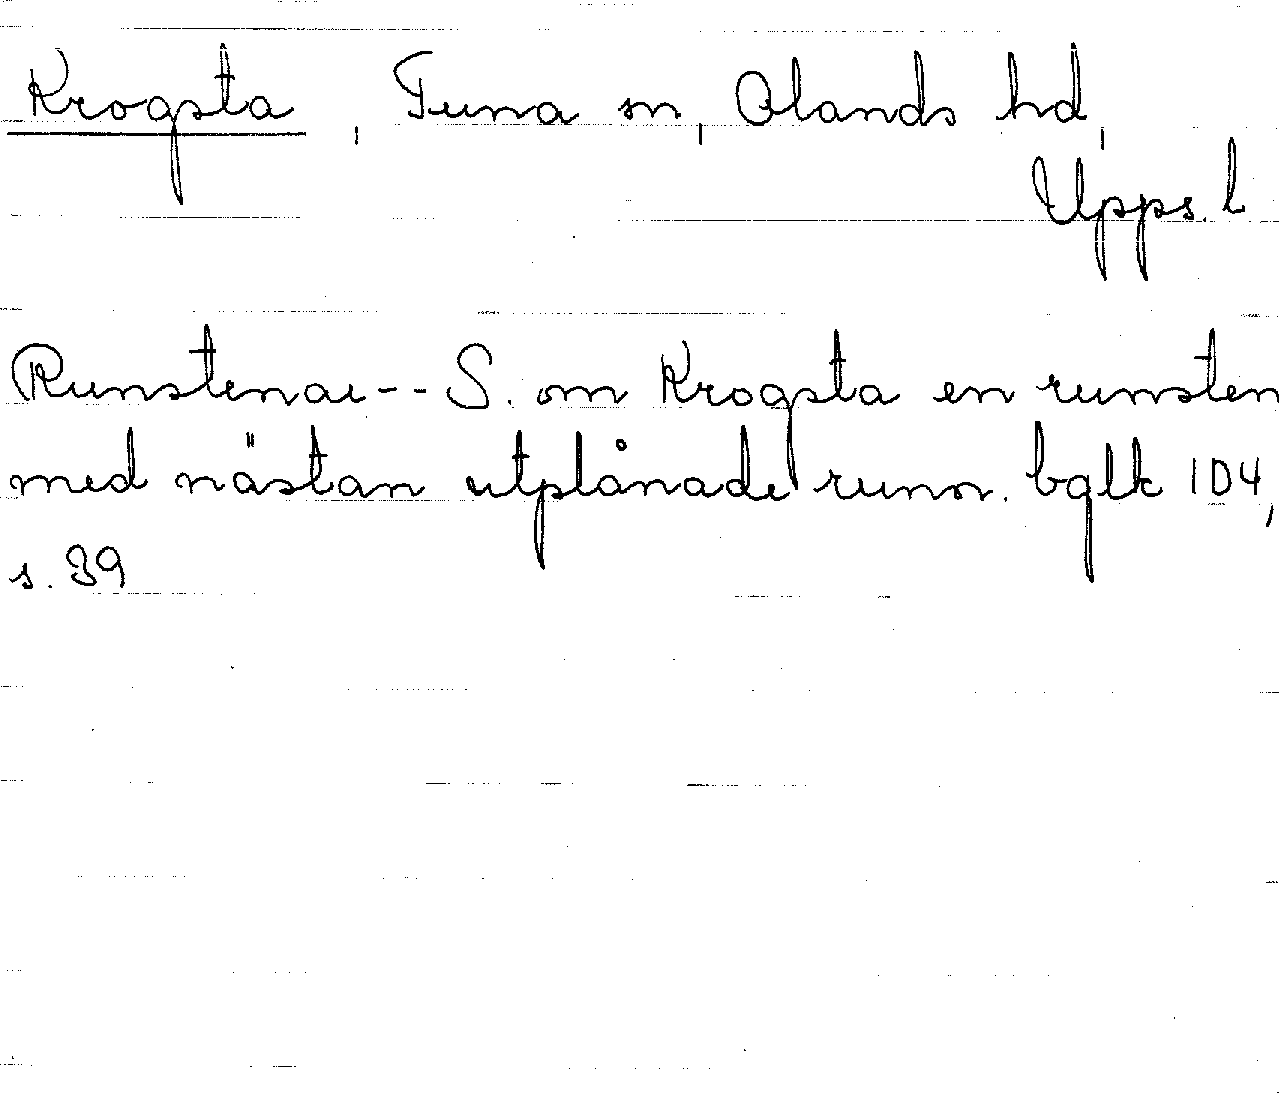 Krogsta, Tuna sn, Olands hd,
Upps. l
Runstenar -- S. om Krogsta en runsten
med nästan utplånade runor. bglk 104,
s. 39